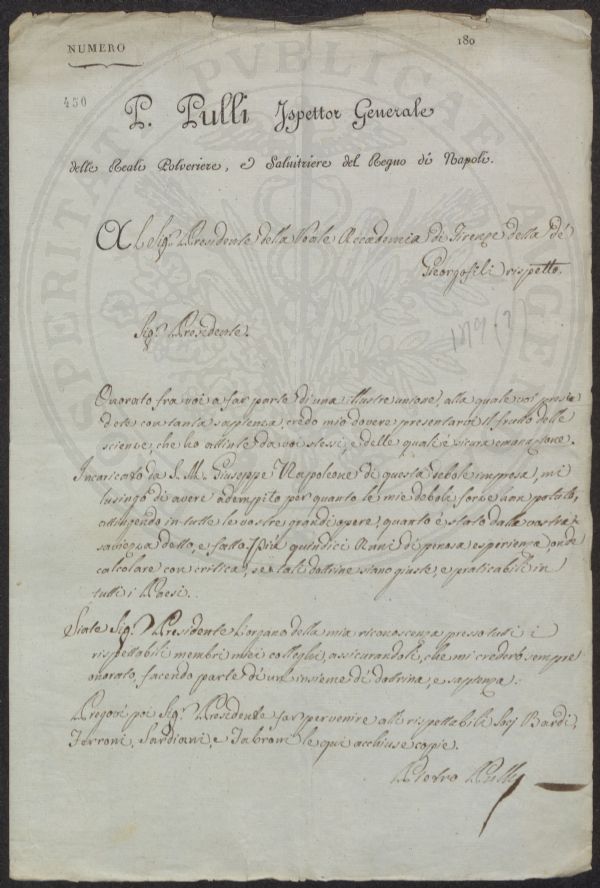 NUMERO
180
450
P. Pulli Ispettor Generale
delle Reali Polveriere, e Salnitriere del Regno di Napoli.
Al Sig.r Presidente della Reale Accademia di Firenze della dé
Georgofili rispetto.
1809 (?)
Sig.r Presidente.
Onorato fra voi a far parte di una illustre unione, alla quale voi presie
dete con tanta sapienza, credo mio dovere presentarvi il frutto delle
scienze, che ho attinte da voi stessi, e delle quali è sicura emanazione.
Incaricato da S. M. Giuseppe Napoleone di questa debole impresa, mi
lusingo di avere adempito per quanto le mie deboli forze han potuto,
attingendo in tutte le vostre grandi opere, quanto è stato dalla vostra
saviezza detto, e fatto. Più quindici Anni di penosa esperienza onde
calcolare con critica, se tali dottrine siano giuste, e praticabili in
tutti i Paesi.
Siate Sig.r Presidente l'organo della mia riconoscenza presso tutti i
rispettabili membri miei colleghi, assicurandoli, che mi crederò sempre
onorato, facendo parte di un insieme di dottrina, e sapienza.
Pregovi poi Sig.r Presidente far pervenire alli rispettabili Socj Bardi,
Ferroni, Sardiani, e Fabroni le qui acchiuse copie.
Pietro Pulli
PUBLICAE
PROSPERITATI
AUGENDAE